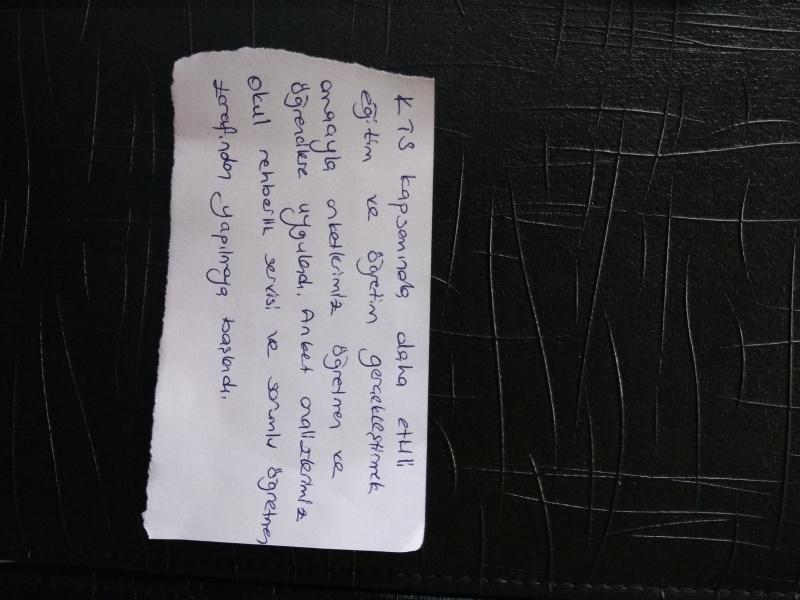 KTS kapsamında daha etkili
eğitim ve öğretim gerçekleştirmek
amacıyla anketlerimiz öğretmen ve
öğrencilere uygulandı. Anket analizlerimiz
okul rehberlik servisi ve sorumlu öğretmen
tarafından yapılmaya başlandı.